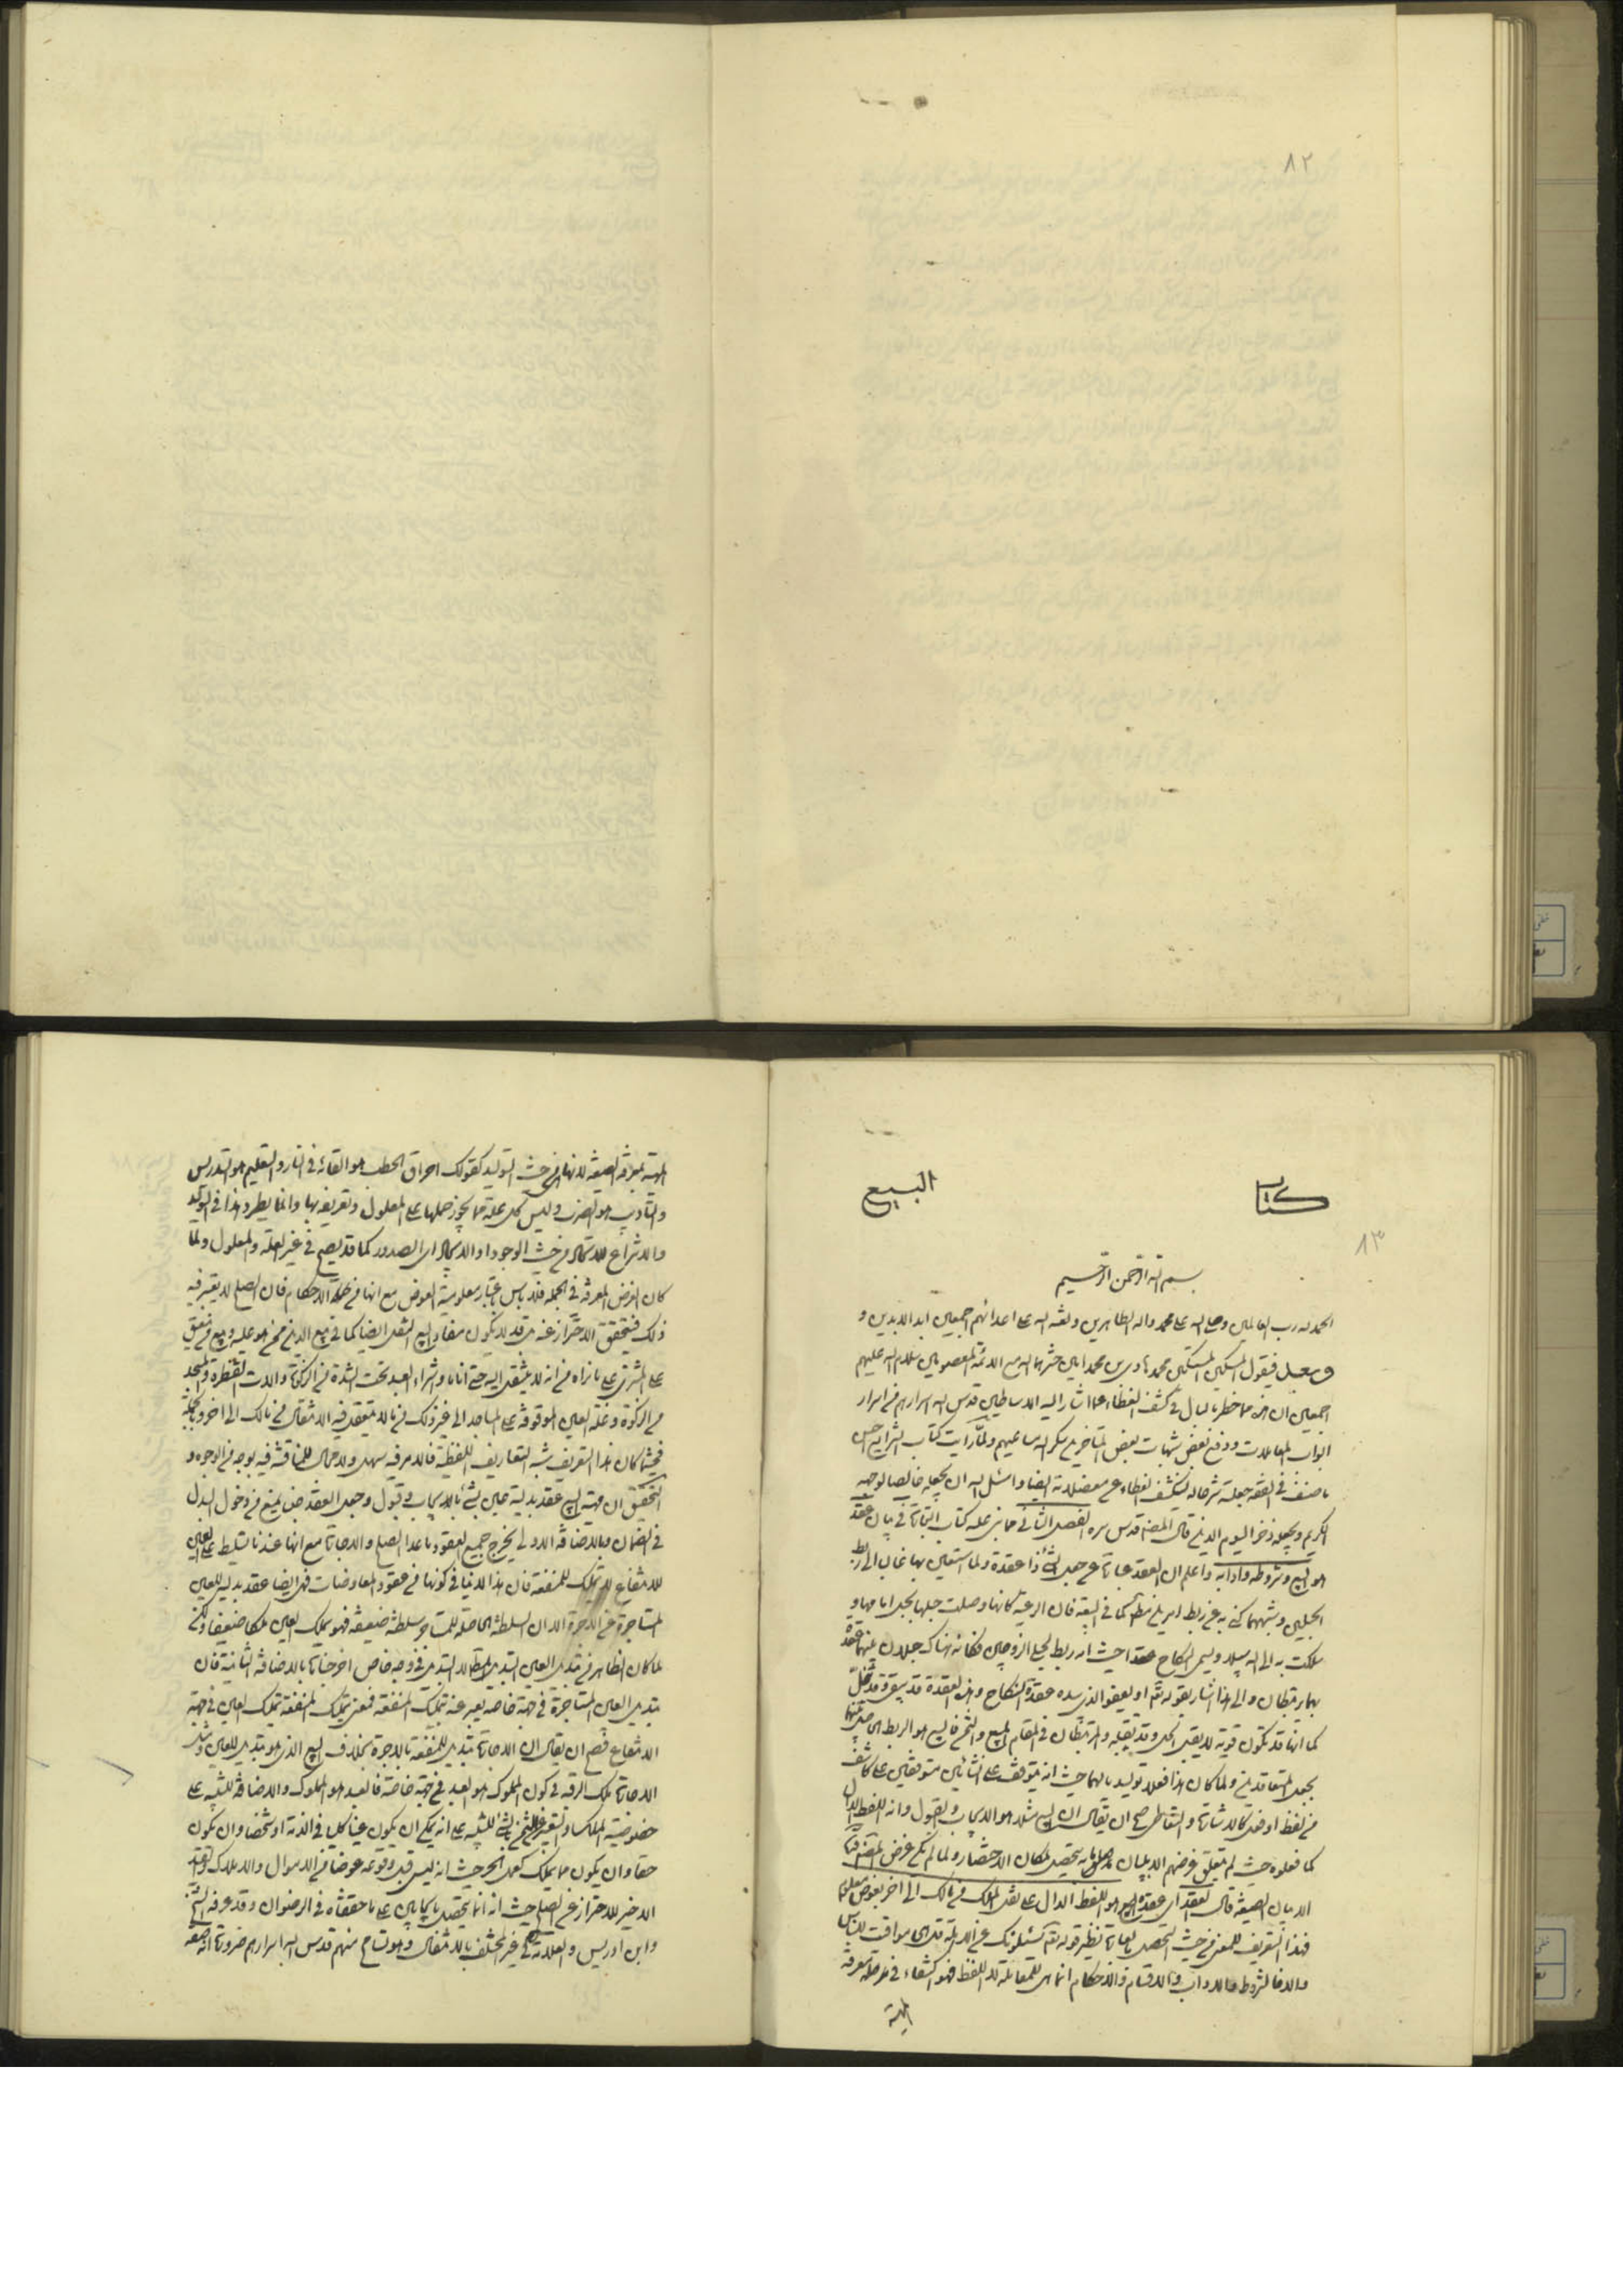 ٨٢
كتاب البيع
٨٣
بسم الله الرحمن الرحيم
الحمد لله رب العالمين وصلى الله على محمد واله الطاهرين ولعنة الله على اعدائهم اجمعين ابد الابدين و
وبعد فيقول المسكين المستكين محمد هادي بن محمد امين حشرهما الله مع الائمة المعصومين سلام الله عليهم
اجمعين ان هذه مما خطر بالبال في كشف الغطاء عما اشار اليه الاساطين قدس الله اسرارهم في اسرار
ابواب المعاملات ودفع بعض شبهات بعض المتاخرين شكر الله مساعيهم ولما رايت كتاب الشرايع احسن
ما صنف في الفقه جعلته شرحا له لينكشف الغطاء عن معضلاته ايضا واسئل الله ان يجعله خالصا لوجهه
الكريم ويجعله ذخرا ليوم الدين قال المصنف قدس سره الفصل الثاني مما بنى عليه كتاب التجارة في بيان عقد
هو البيع وشروطه وادابه واعلم ان العقد عبارة عن جعل الشئ ذا عقدة ولما استعين بها غالبا في ربط
الحبلين وشبههما كنى به عن ربط امرين مطلقا كما في البيعة فان الرعية كانها وصلت حبلها بحبل امامها و
سلكت به الى الله سبيلا ويسمى النكاح عقدا حيث انه ربط لحبلي الزوجين فكانه هناك حبلان بينهما عقدة
بها يرتبطان والى هذا اشار بقوله تعالى او يعفو الذي بيده عقدة النكاح وهذه العقدة قد يبقى وقد تنحل
كما انها قد تكون قوية لا يقبل الحل وقد يقبله والمرتبطان في المقام المبيع والثمن فالبيع هو الربط الحاصل بينهما
بجعل المتعاقدين ولما كان هذا فعلا توليديا لهما حيث انه يتوقف على انشائين متوقفين على كاشف
من لفظ او فعل كالاشارة والتعاطي صح ان يقال ان البيع مثلا هو الايجاب والقبول وانه اللفظ الدال
كما فعلوه حيث لم يتعلق غرضهم الا ببيان ما به يتحصل لمكان الاختصار ولما لم يكن غرض المصنف هنا
الا بيان الصيغة قال العقد اي عقدة البيع هو اللفظ الدال على نقل الملك من مالك الى اخر بعوض معلوم
فهذا التعريف للمعنى من حيث التحصل بالعبارة نظير قوله تعالى يسئلونك عن الاهلة قل هي مواقيت للناس
والا فالشروط والاداب والاقسام والاحكام انما هي للمعاملة لا للفظ فهو اكتفاء في مرحلة معرفة
المهية
المهية بمعرفة الصيغة لانها هي من حيث التوليد كقولك احراق الحطب هو القائه في النار والتعليم هو التدريس
والتاديب هو الضرب وليس كل علة مما يجوز حملها على المعلول وتعريفه بها وانما يطرد هذا في التوليد
والانتزاع للاتحاد من حيث الوجود او الايجاد اي الصدور كما قد يصح في غير العلة والمعلول ولما
كان الغرض المعرفة في الجملة فلا باس باعتبار معلومية العوض مع انها من جملة الاحكام فان الصلح لا يعتبر فيه
ذلك فيتحقق الاحتراز عنه بل قد لا يكون مفاد البيع النقل ايضا كما في بيع الدين ممن هو عليه وبيع من ينعتق
على المشتري على ما نراه من انه لا ينتقل اليه حتى انا ما وشراء العبد تحت الشدة من الزكوة والات القنطرة والمسجد
من الزكوة وغلة العين الموقوفة على المساجد الى غير ذلك مما لا يتعقل فيه الانتقال من مالك الى اخر وبالجملة
فحيثما كان هذا التعريف شبه التعاريف اللفظية فالامر فيه سهل ولا مجال للمناقشة فيه بوجه من الوجوه و
التحقيق ان مهية البيع عقد بدلية عين بشئ بالايجاب وقبول وجعل العقد جنسا يمنع من دخول البدل
في الضمان وبالاضافة الاولى يخرج جميع العقود ما عدا الصلح والاجارة مع انها عندنا تسليط على العين
للانتفاع لا تمليك للمنفعة فان هذا لا ينافي كونها من عقود المعاوضات فهي ايضا عقد بدلية للعين
المستاجرة عن الاجرة الا ان السلطة الحاصلة للمستاجر سلطة ضعيفة فهو يملك العين ملكا ضعيفا ولكن
لما كان الظاهر من تبديل العين التبديل المطلق لا التبديل في وجه خاص اخرجنا الاجارة بالاضافة الثانية فان
تبديل العين المستاجرة في جهة خاصة يعبر عنه تمليك المنفعة فمعنى تمليك المنفعة تمليك العين في جهة
الانتفاع فصح ان يقال ان الاجارة تبديل للمنفعة بالاجرة بخلاف البيع الذي هو تبديل للعين ومثل
الاجارة ملك الرقبة في كون المملوك هو العبد في جهة خاصة فالعبد هو المملوك والاضافة للتنبيه على
خصوصية الملك والتعبير عن الثمن بالشئ للتنبيه على انه يمكن ان يكون عينا كليا في الذمة او شخصا وان يكون
حقا وان يكون مما يملك كعمل الحر حيث انه ليس قبل وقوعه عوضا من الاموال والاملاك والقيد
الاخير للاحتراز عن الصلح حيث انه انما يتحصل بايجابين على ما حققناه في الرضوان وقد عرفه الشيخ
وابن ادريس والعلامة في غير المختلف بالانتقال وهو تسامح منهم قدس الله اسرارهم ضرورة انه صفة